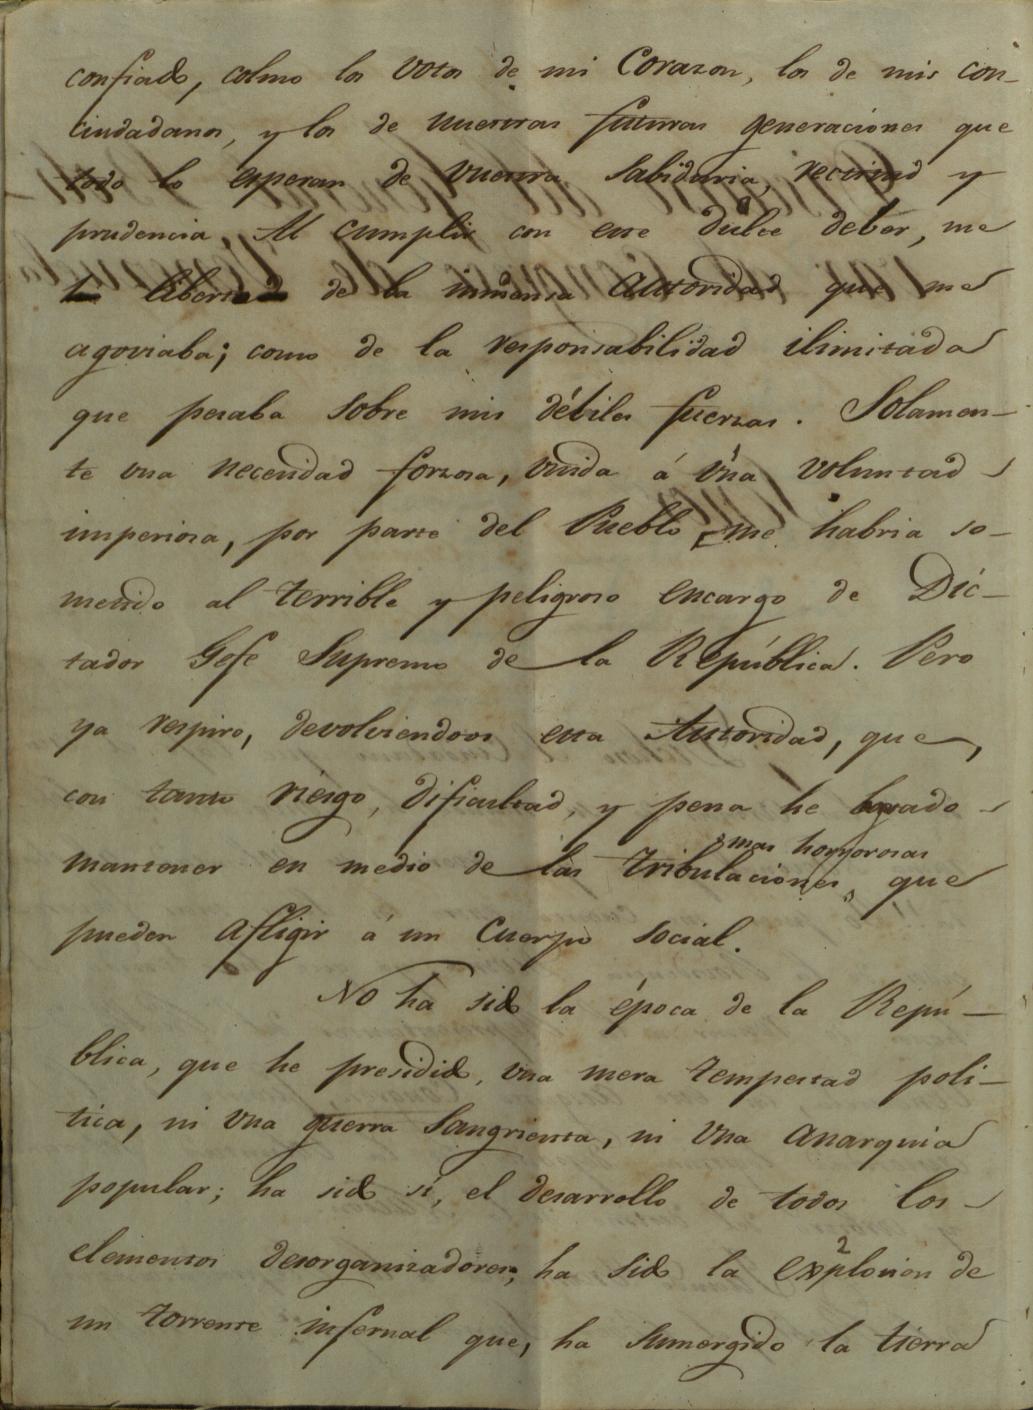 confiado, colmo los votos de mi Corazon, los de mis con-
ciudadanos, y los de nuestras futuras generaciones que
todo lo esperan de vuestra sabiduria, rectitud y
prudencia. Al cumplir con este dulce deber, me
liberto de la inmensa Autoridad que me
agoviaba; como de la responsabilidad ilimitada
que pesaba sobre mis débiles fuerzas. Solamen-
te una necesidad forzosa, unida á una voluntad
imperiosa, por parte del Pueblo me habria so-
metido al terrible y peligroso encargo de Dic-
tador Gefe Supremo de la República. Pero
ya respiro, devolviendoos esta Autoridad, que,
con tanto riesgo, dificultad, y pena he logrado
mas horrorosas
mantener en medio de las tribulaciones, que
pueden afligir á un Cuerpo social.
No ha sido la época de la Repú-
blica, que he presidido, una mera tempestad poli-
tica, ni una guerra sangrienta, ni una anarquia
popular; ha sido sí, el desarrollo de todos los
elementos desorganizadores; ha sido la explosion de
un torrente infernal que, ha sumergido la tierra